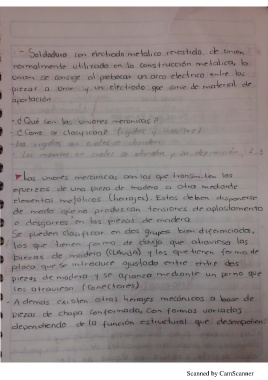 - Soldadura con electrodo metalico revestido, de union
normalmente utilizado en la construcción metalica, la
union se consige al provocar un arco electrico entre las
piezas a unir y un electrodo que sirve de material de
aportación
- ¿Qué son las uniones mecanicas?
- ¿Como se clasifican?
Las uniones mecanicas son las que transmiten los
esfuerzos de una pieza de madera a otra mediante
elementos metalicos (herajes). Estos deben disponerse
de modo que no produzcan tensiones de aplastamiento
o desgarros en las piezas de madera.
Se pueden clasificar en dos grupos bien diferenciados,
los que tienen forma de clavija que atraviesa las
piezas de madera (clavijas) y los que tienen forma de
placa que se introduce ajustado entre entre dos
piezas de madera y se afianza mediante un perno que
los atraviesa (conectores)
- Ademas existen otros herajes mecánicos a base de
piezas de chapa conformada con formas variadas
dependiendo de la función estructural que desempeñen
Scanned by CamScanner